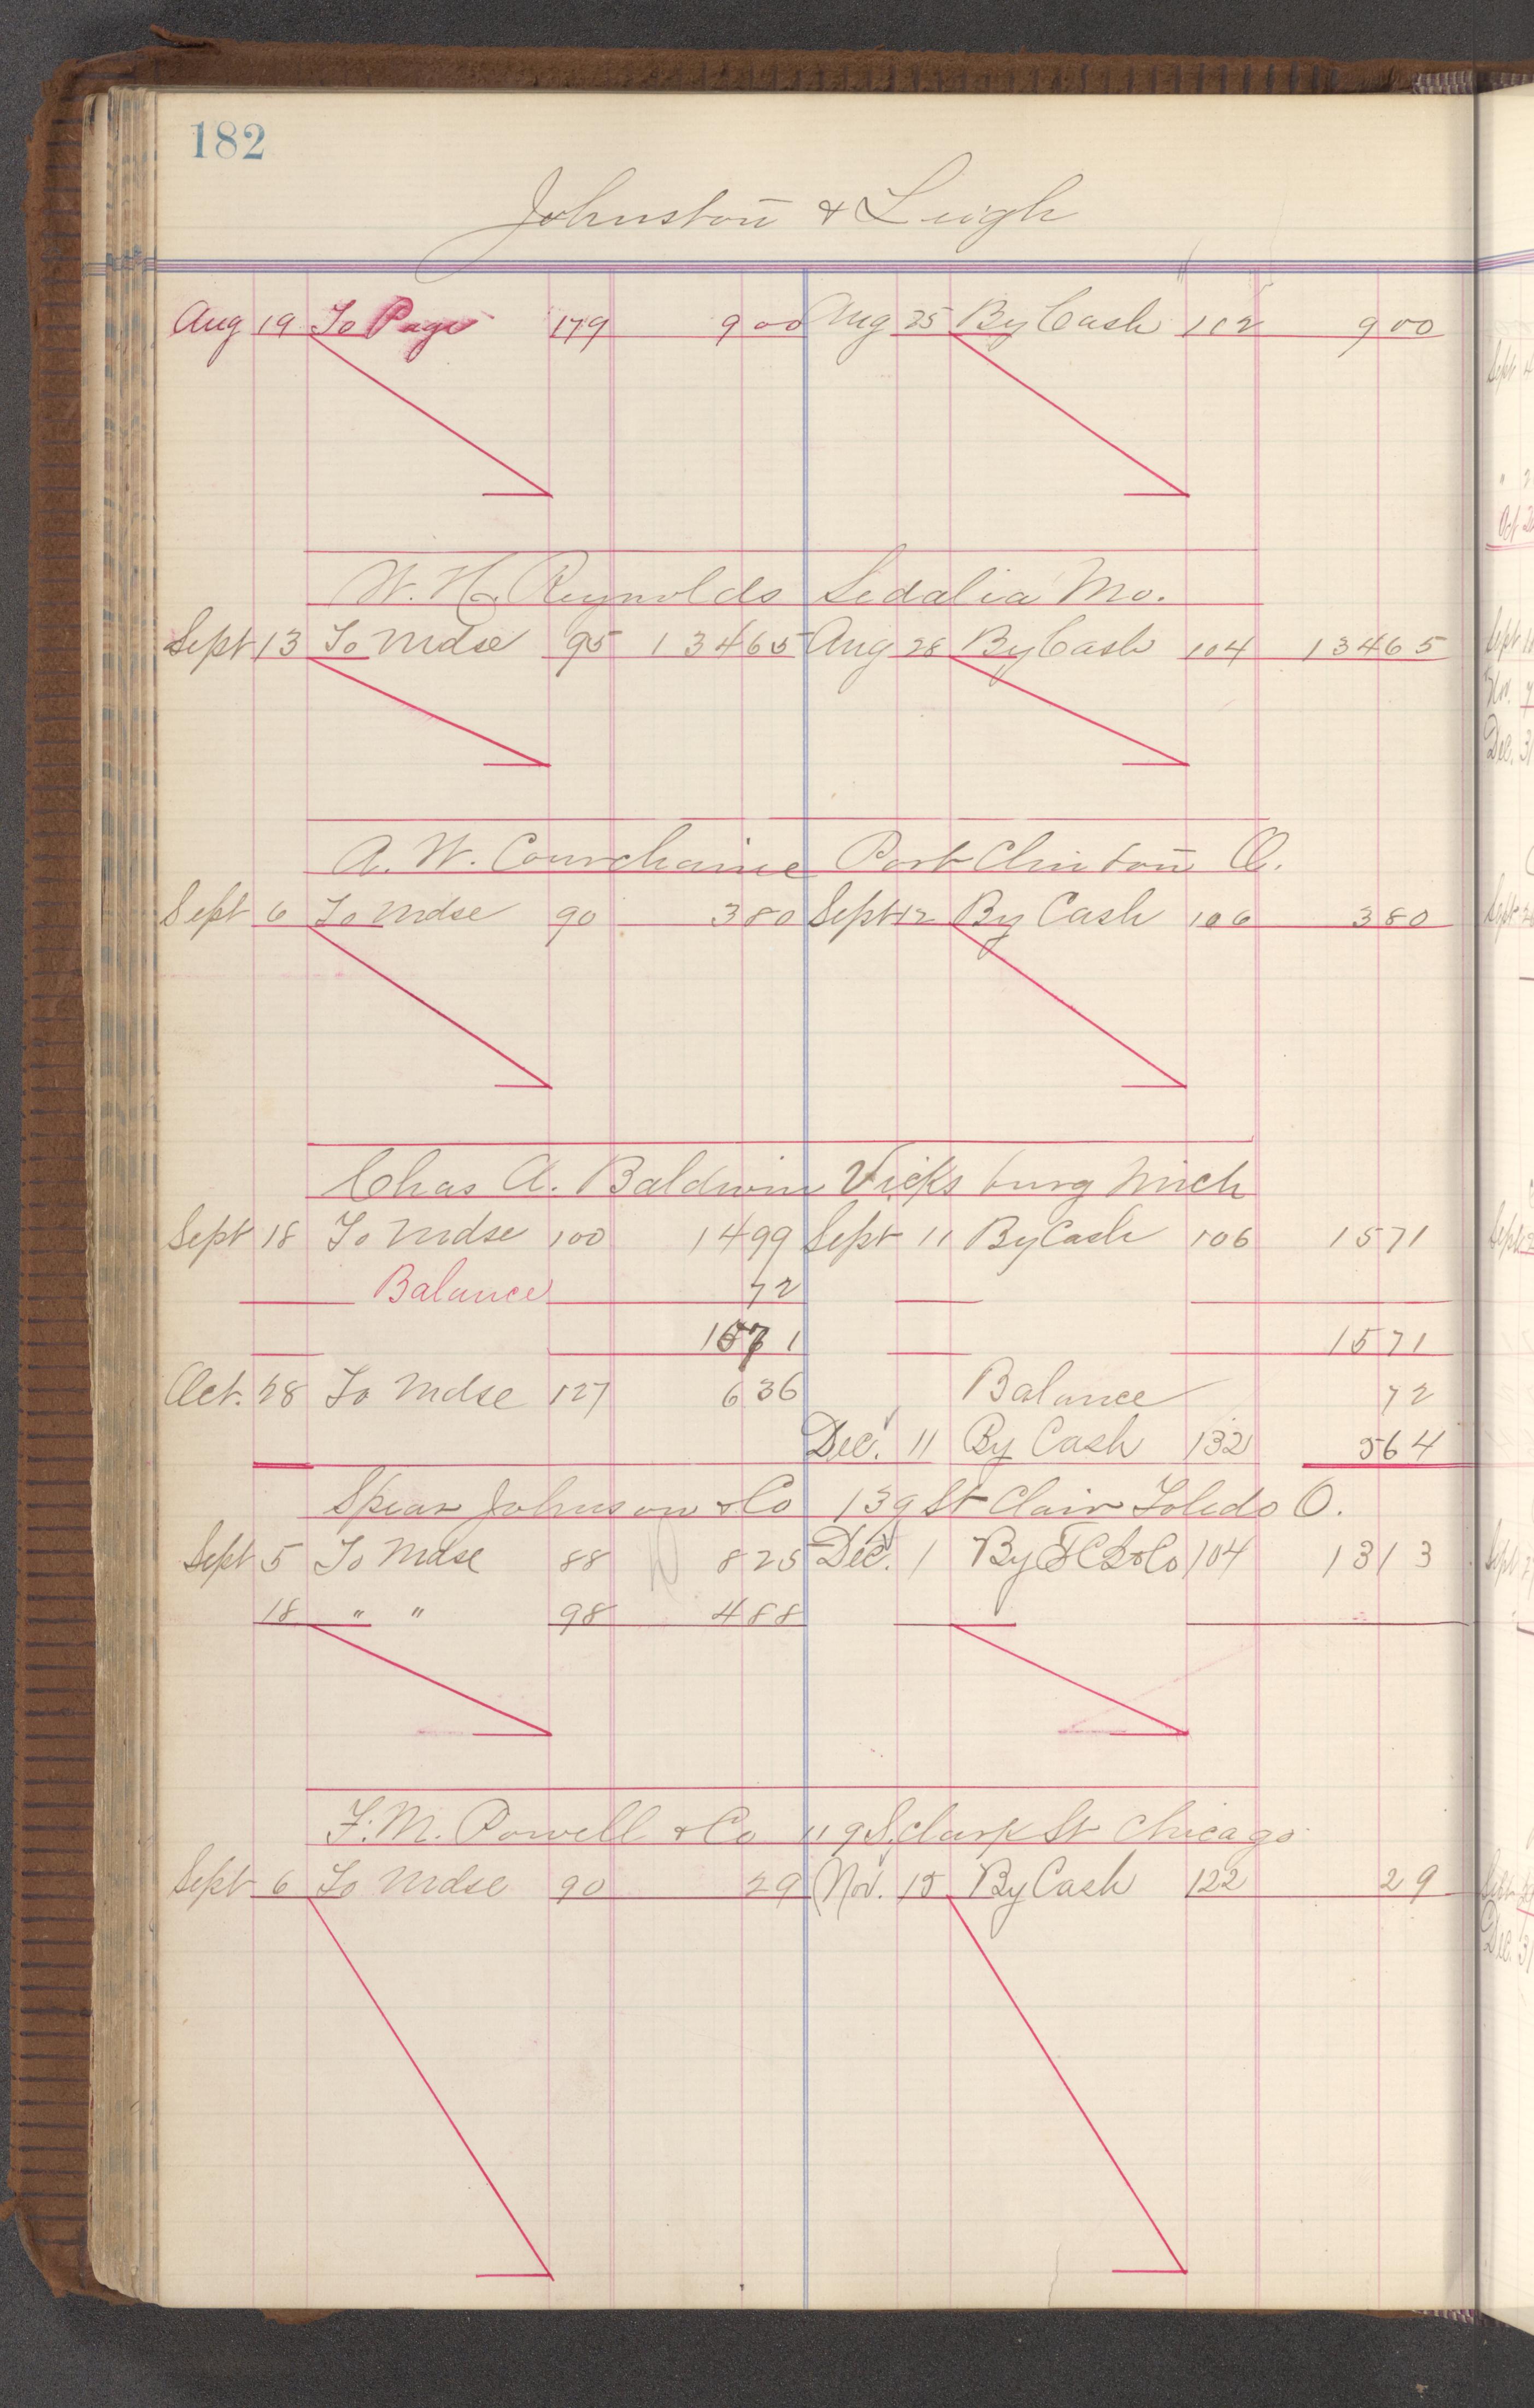 182
Johnston & Leigh
Aug 19 To Page 179 9 00 Aug 25 By Cash 102 9 00
W. H. Reynolds Sedalia Mo.
Sept 13 To Mdse 95 134 65 Aug 28 By Cash 104 134 65
A. W. Courchaine Port Clinton O.
Sept 6 To Mdse 90 3 80 Sept 12 By Cash 106 3 80
Chas A. Baldwin Vicksburg Mich
Sept 18 To Mdse 100 14 99 Sept 11 By Cash 106 15 71
Balance 72
15 71 15 71
Oct. 28 To Mdse 127 6 36 Balance 72
Dec. 11 By Cash 132 5 64
Spear Johnson & Co 139 St Clair Toledo O.
Sept 5 To Mdse 88 8 25 Dec. 1 By 104 13 13
18 " " 98 4 88
F. M. Powell & Co 119 S. Clark St Chicago
Sept 6 To Mdse 90 29 Nov. 15 By Cash 122 29